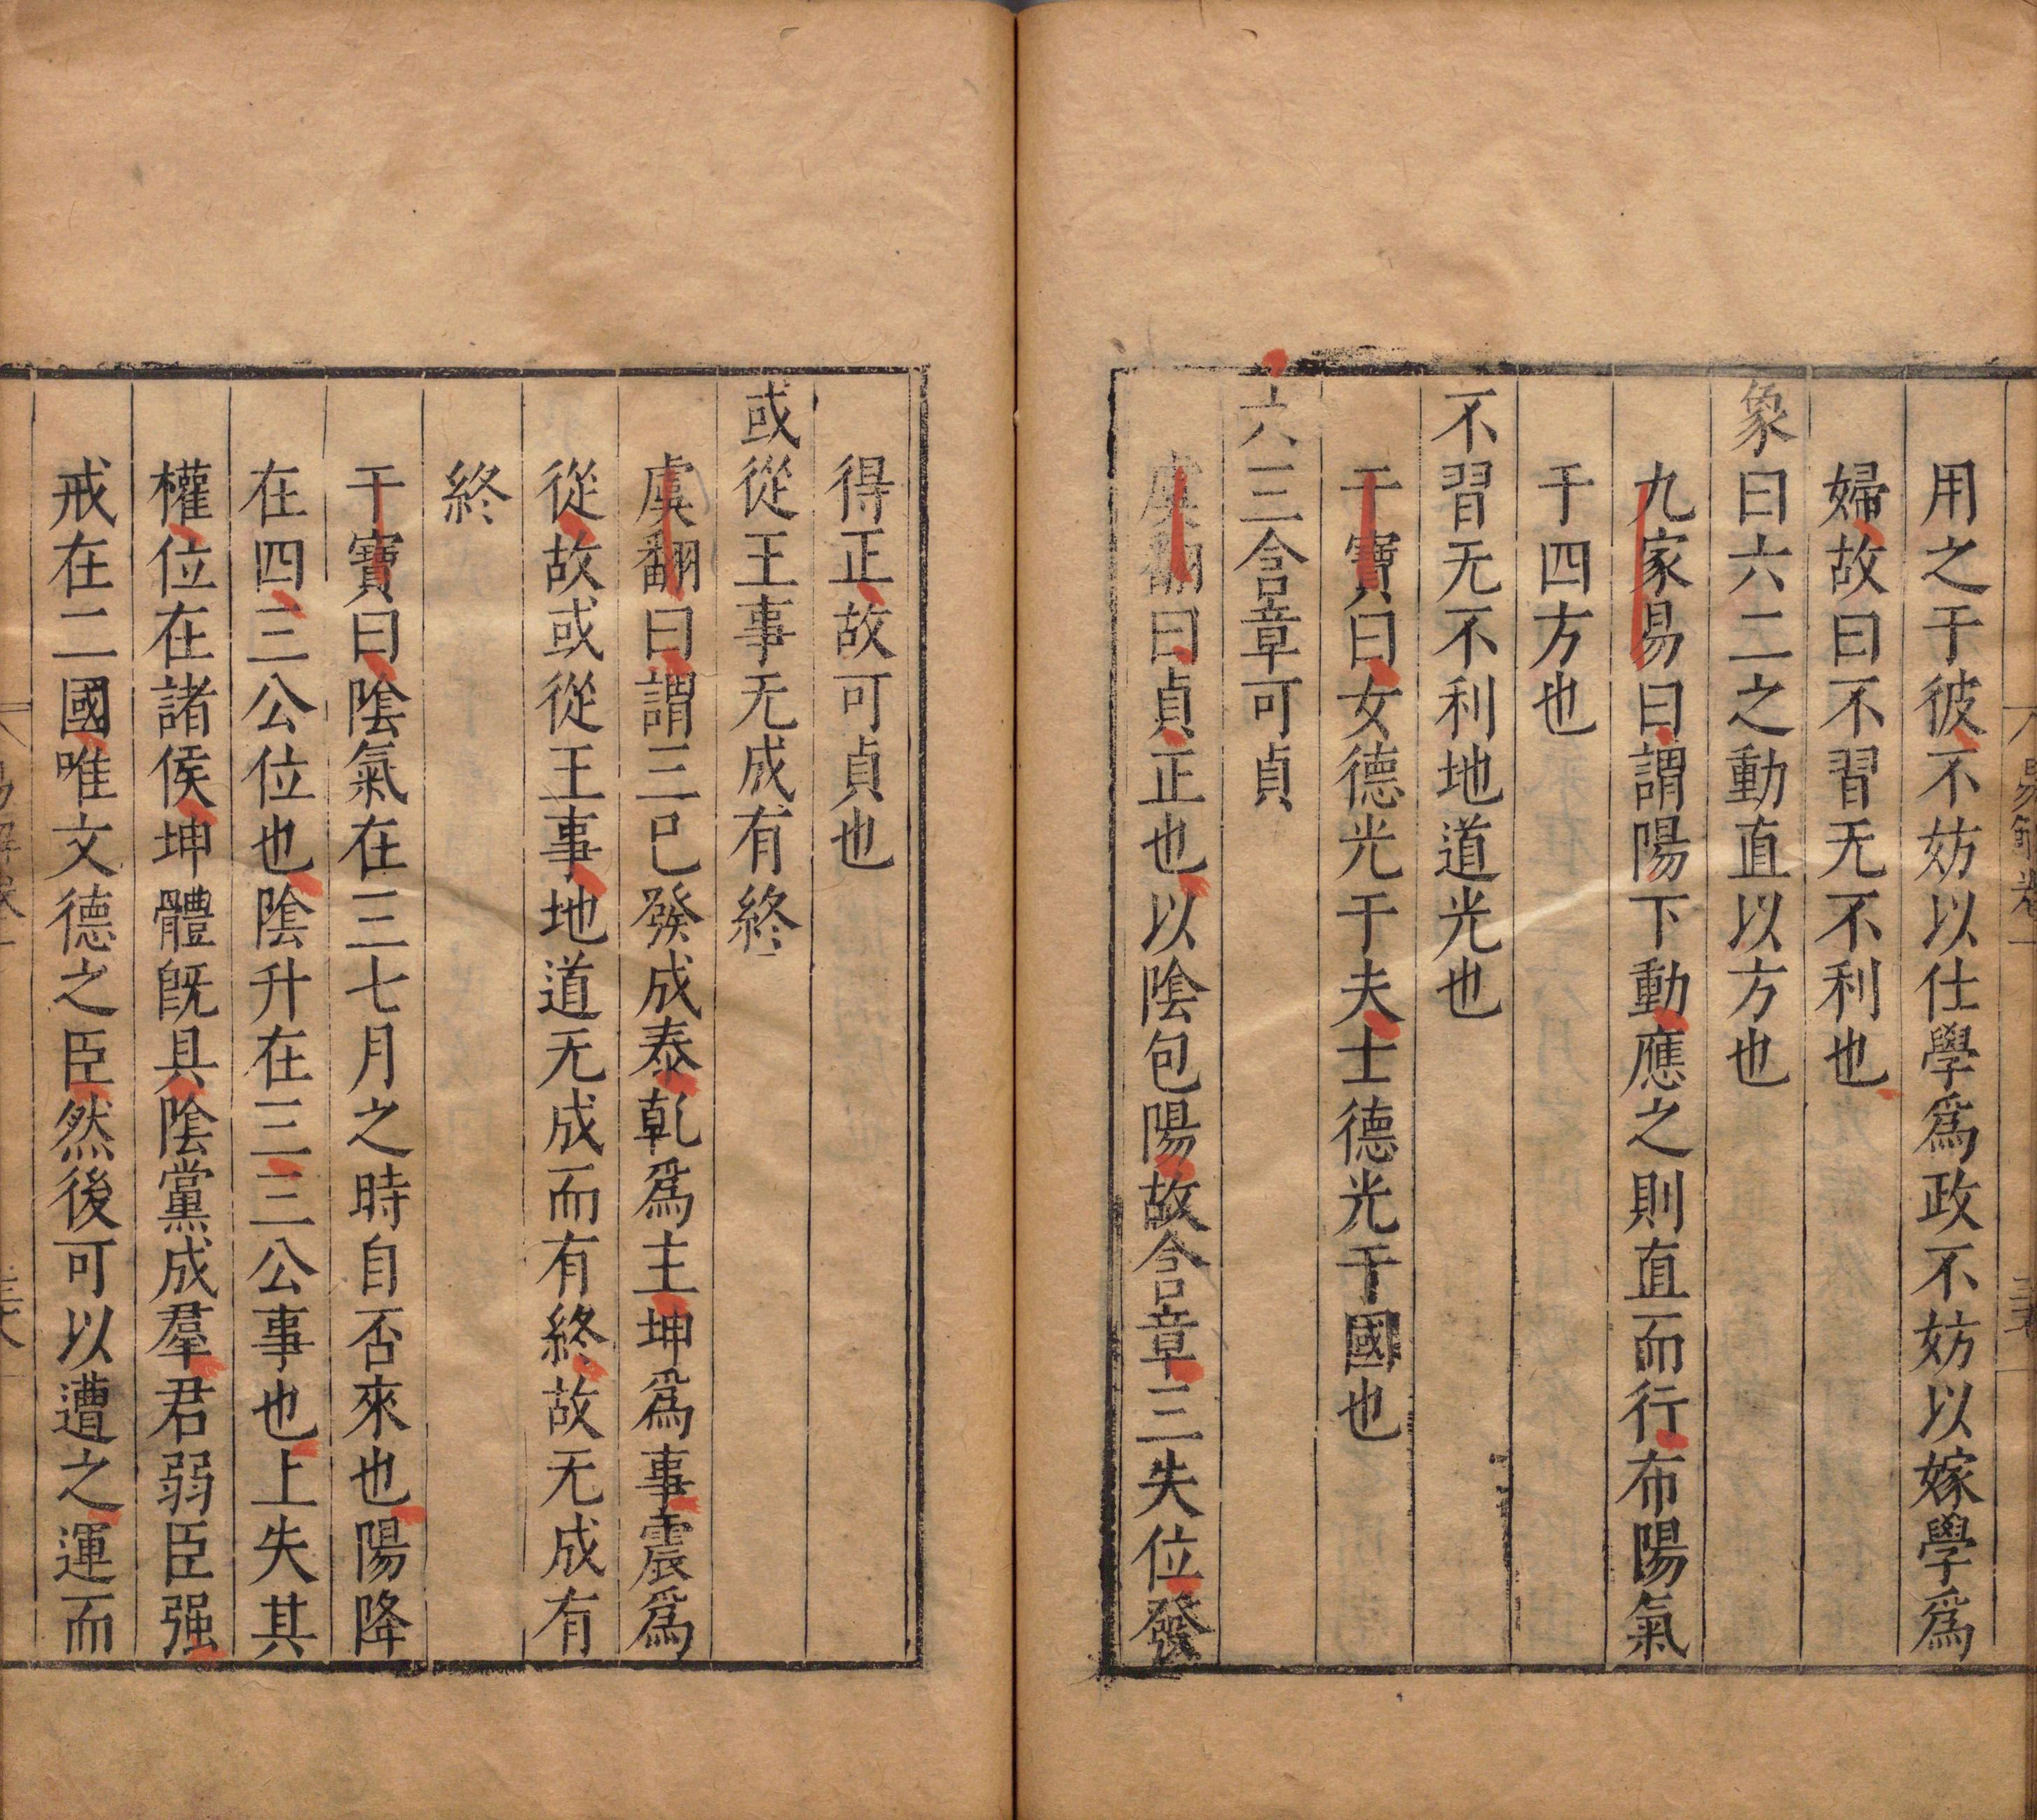 用之于彼不妨以仕學爲政不妨以嫁學爲
婦故曰不習无不利也
象曰六二之動直以方也
九家易曰謂陽下動應之則直而行布陽氣
于四方也
不習无不利地道光也
干寶曰女德光于夫士德光于國也
六三含章可貞
虞翻曰貞正也以陰包陽故含章三失位發
得正故可貞也
或從王事无成有終
虞翻曰謂三已發成泰乾爲主坤爲事震爲
從故或從王事地道无成而有終故无成有
終
干寶曰陰氣在三七月之時自否來也陽降
在四三公位也陰升在三三公事也上失其
權位在諸侯坤體旣具陰黨成羣君弱臣强
戒在二國唯文德之臣然後可以遭之運而